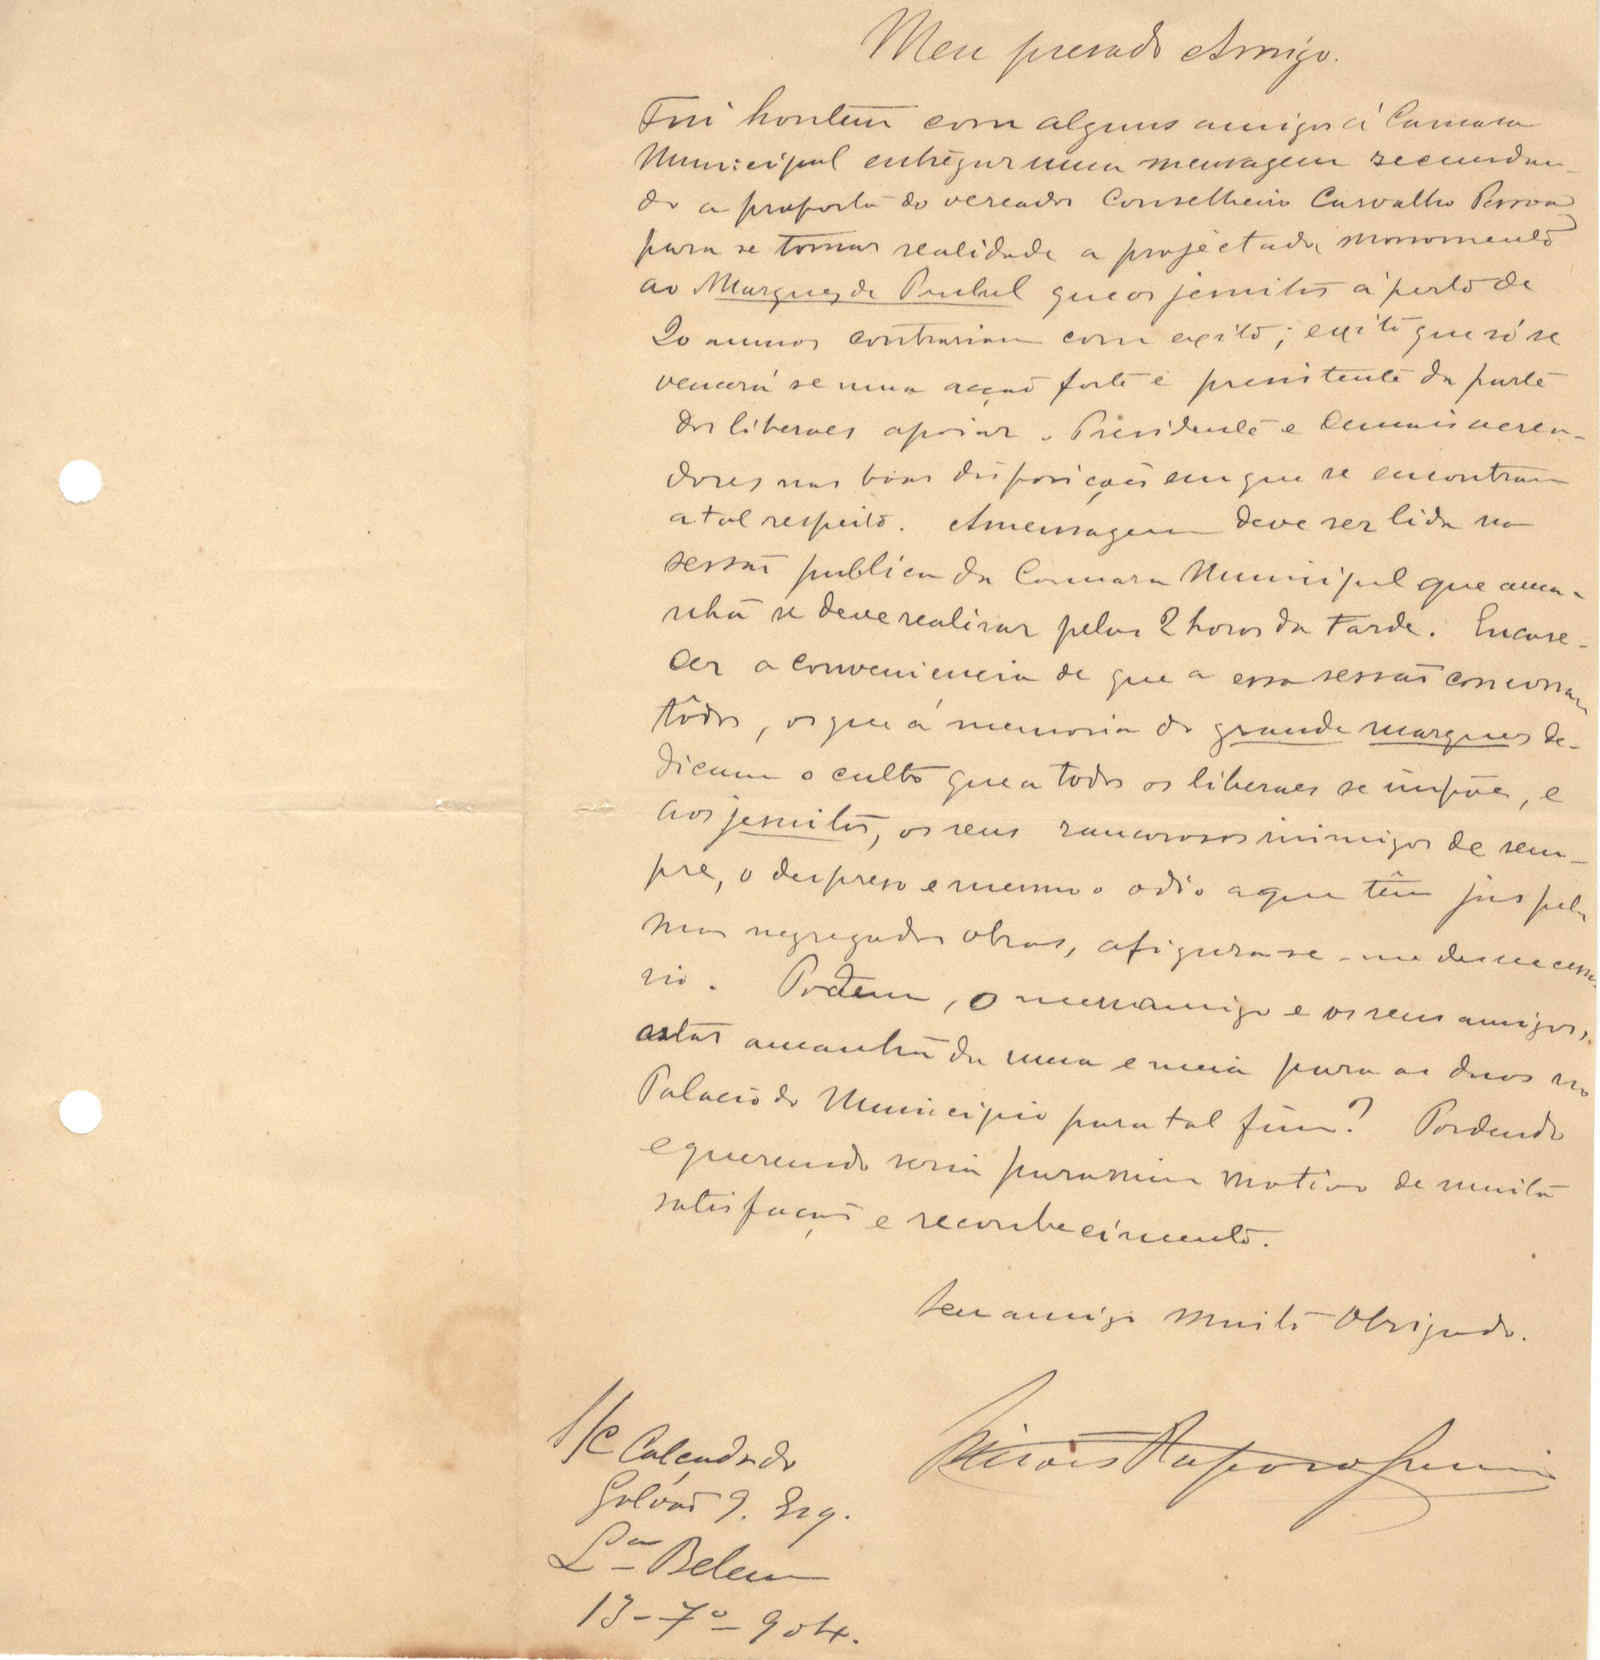 Meu presado Amigo.
Fui hontem com alguns amigos á Camara
Municipal entregar uma mensagem secundan-
do a proposta do vereador Conselheiro Carvalho Pessoa
para se tornar realidade a projectado monomento
ao Marquez de Pombal que os jesuitas á perto de
20 annos contrariam com exito; exito que só se
vencerá se uma acção forte e presistente da parte
dos liberaes apoiar o Presidente e demais verea-
dores nas boas disposições em que se encontram
a tal respeito. A mensagem deve ser lida na
sessão publica da Camara Municipal que ama-
nhã se deve realisar pelas 2 horas da tarde. Encare-
cer a conveniencia de que a essa sessão concorram
tôdos, os que á memoria do grande marques de-
dicam o culto que a todos os liberaes se impõe, e
aos jesuitas, os seus rancorosos inimigos de sem-
pre, o despreso e mesmo o odio a que têm jus pelas
suas negregadas obras, afigura-se-me desnecessa
rio. Podem, o meu amigo e os seus amigos,
estar amanhã da uma e meia para as duas no
Palacio do Municipio para tal fim? Podendo
e querendo seria para mim motivo de muita
satisfação e reconhecimento.
Seu amigo muito Obrigado.
S/C Calçada do
Galvão 9. Esq.
Lxa Belem
13-7º-904.